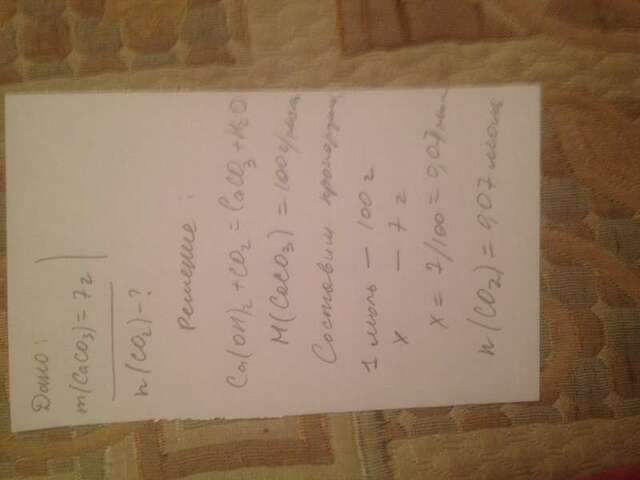 Дано:
m(CaCO₃)=7г
n(CO₂)-?
Решение:
Ca(OH)₂+CO₂=CaCO₃+H₂O
M(CaCO₃)=100г/моль
Составим пропорцию
1 моль – 100 г
x – 7 г
x=7/100=0,07моль
n(CO₂)=0,07моль